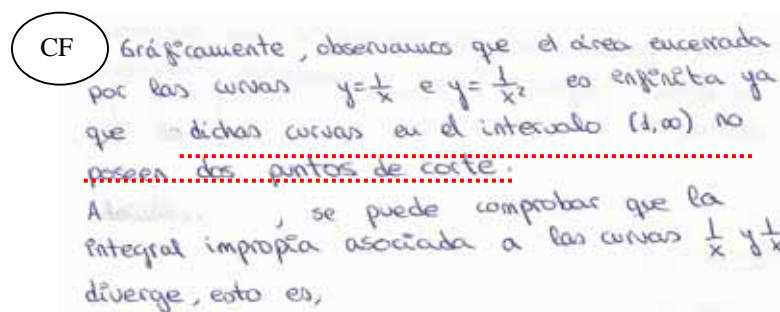 CF
Gráficamente, observamos que el área encerrada
por las curvas y=1/x e y=1/x² es infinita ya
que dichas curvas en el intervalo (1,∞) no
poseen dos puntos de corte.
A , se puede comprobar que la
integral impropia asociada a las curvas 1/x y 1/x
diverge, esto es,